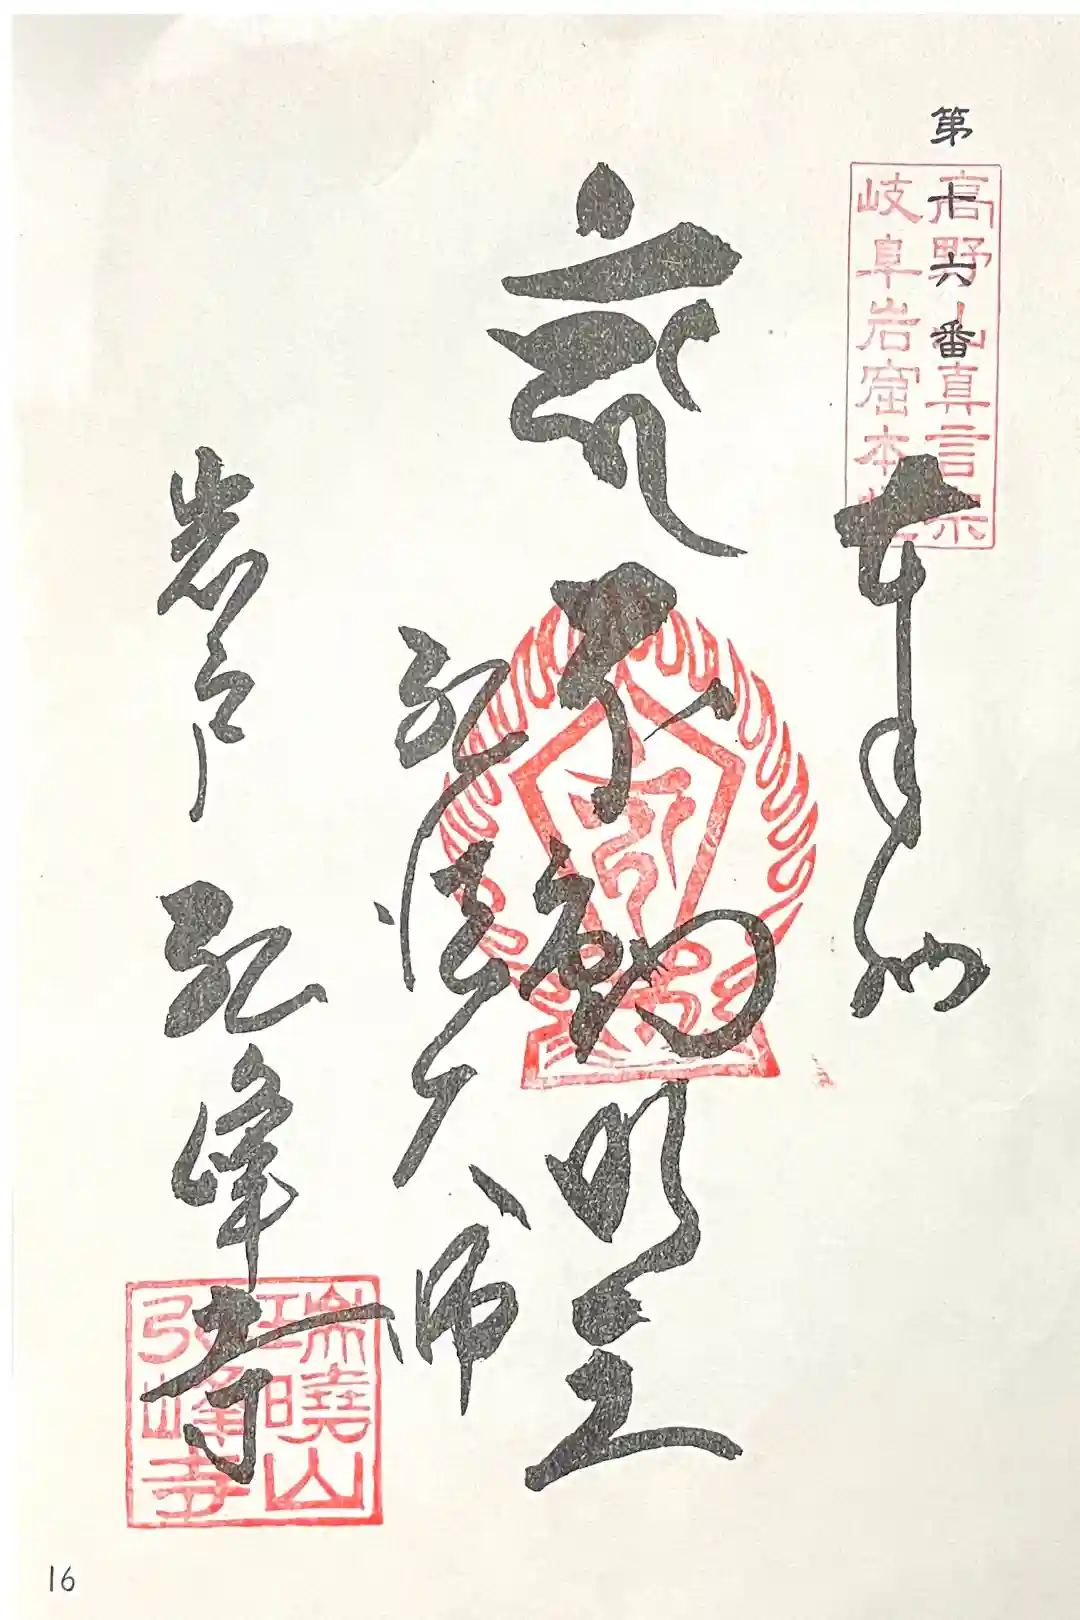 第十六番
高野山真言宗
岐阜岩窟本
奉拝
不動明王
弘法大師
岩戸
弘峰寺
瑞暁山
弘峰寺
16